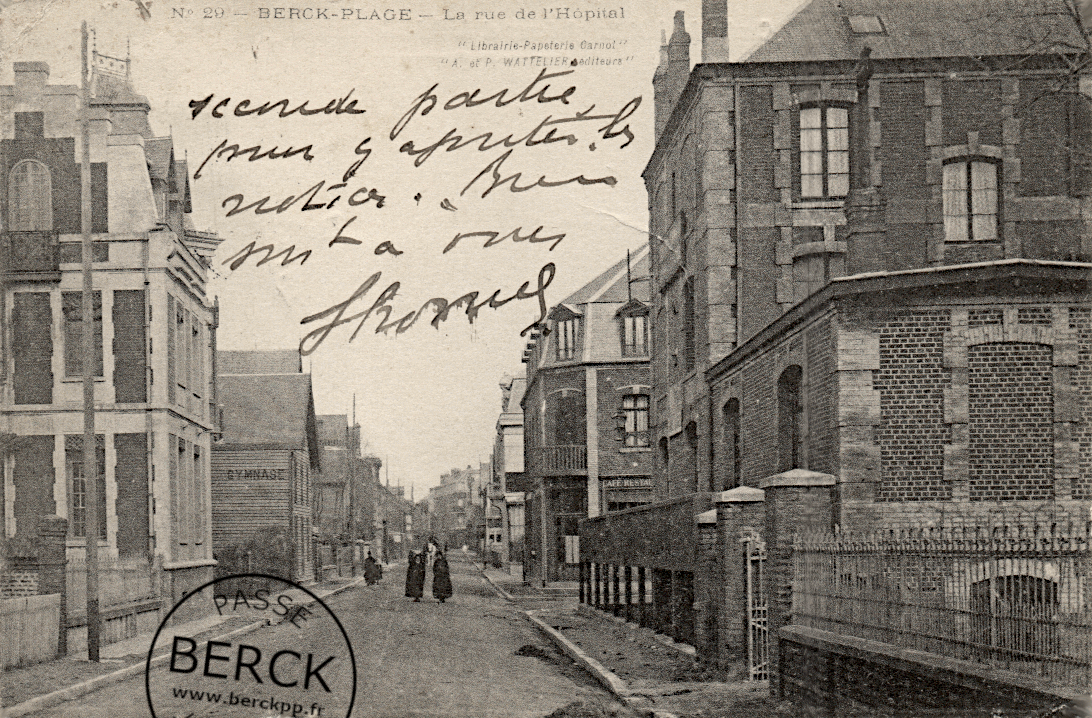 No 29 — BERCK-PLAGE — La rue de l'Hôpital
"Librairie-Papeterie Carnot"
"A. et P. WATTELIER éditeurs"
seconde partie
pour y ajouter les
notices. Bien
à vous
GYMNASE
CAFÉ RESTAU
PASSÉ
BERCK
www.berckpp.fr